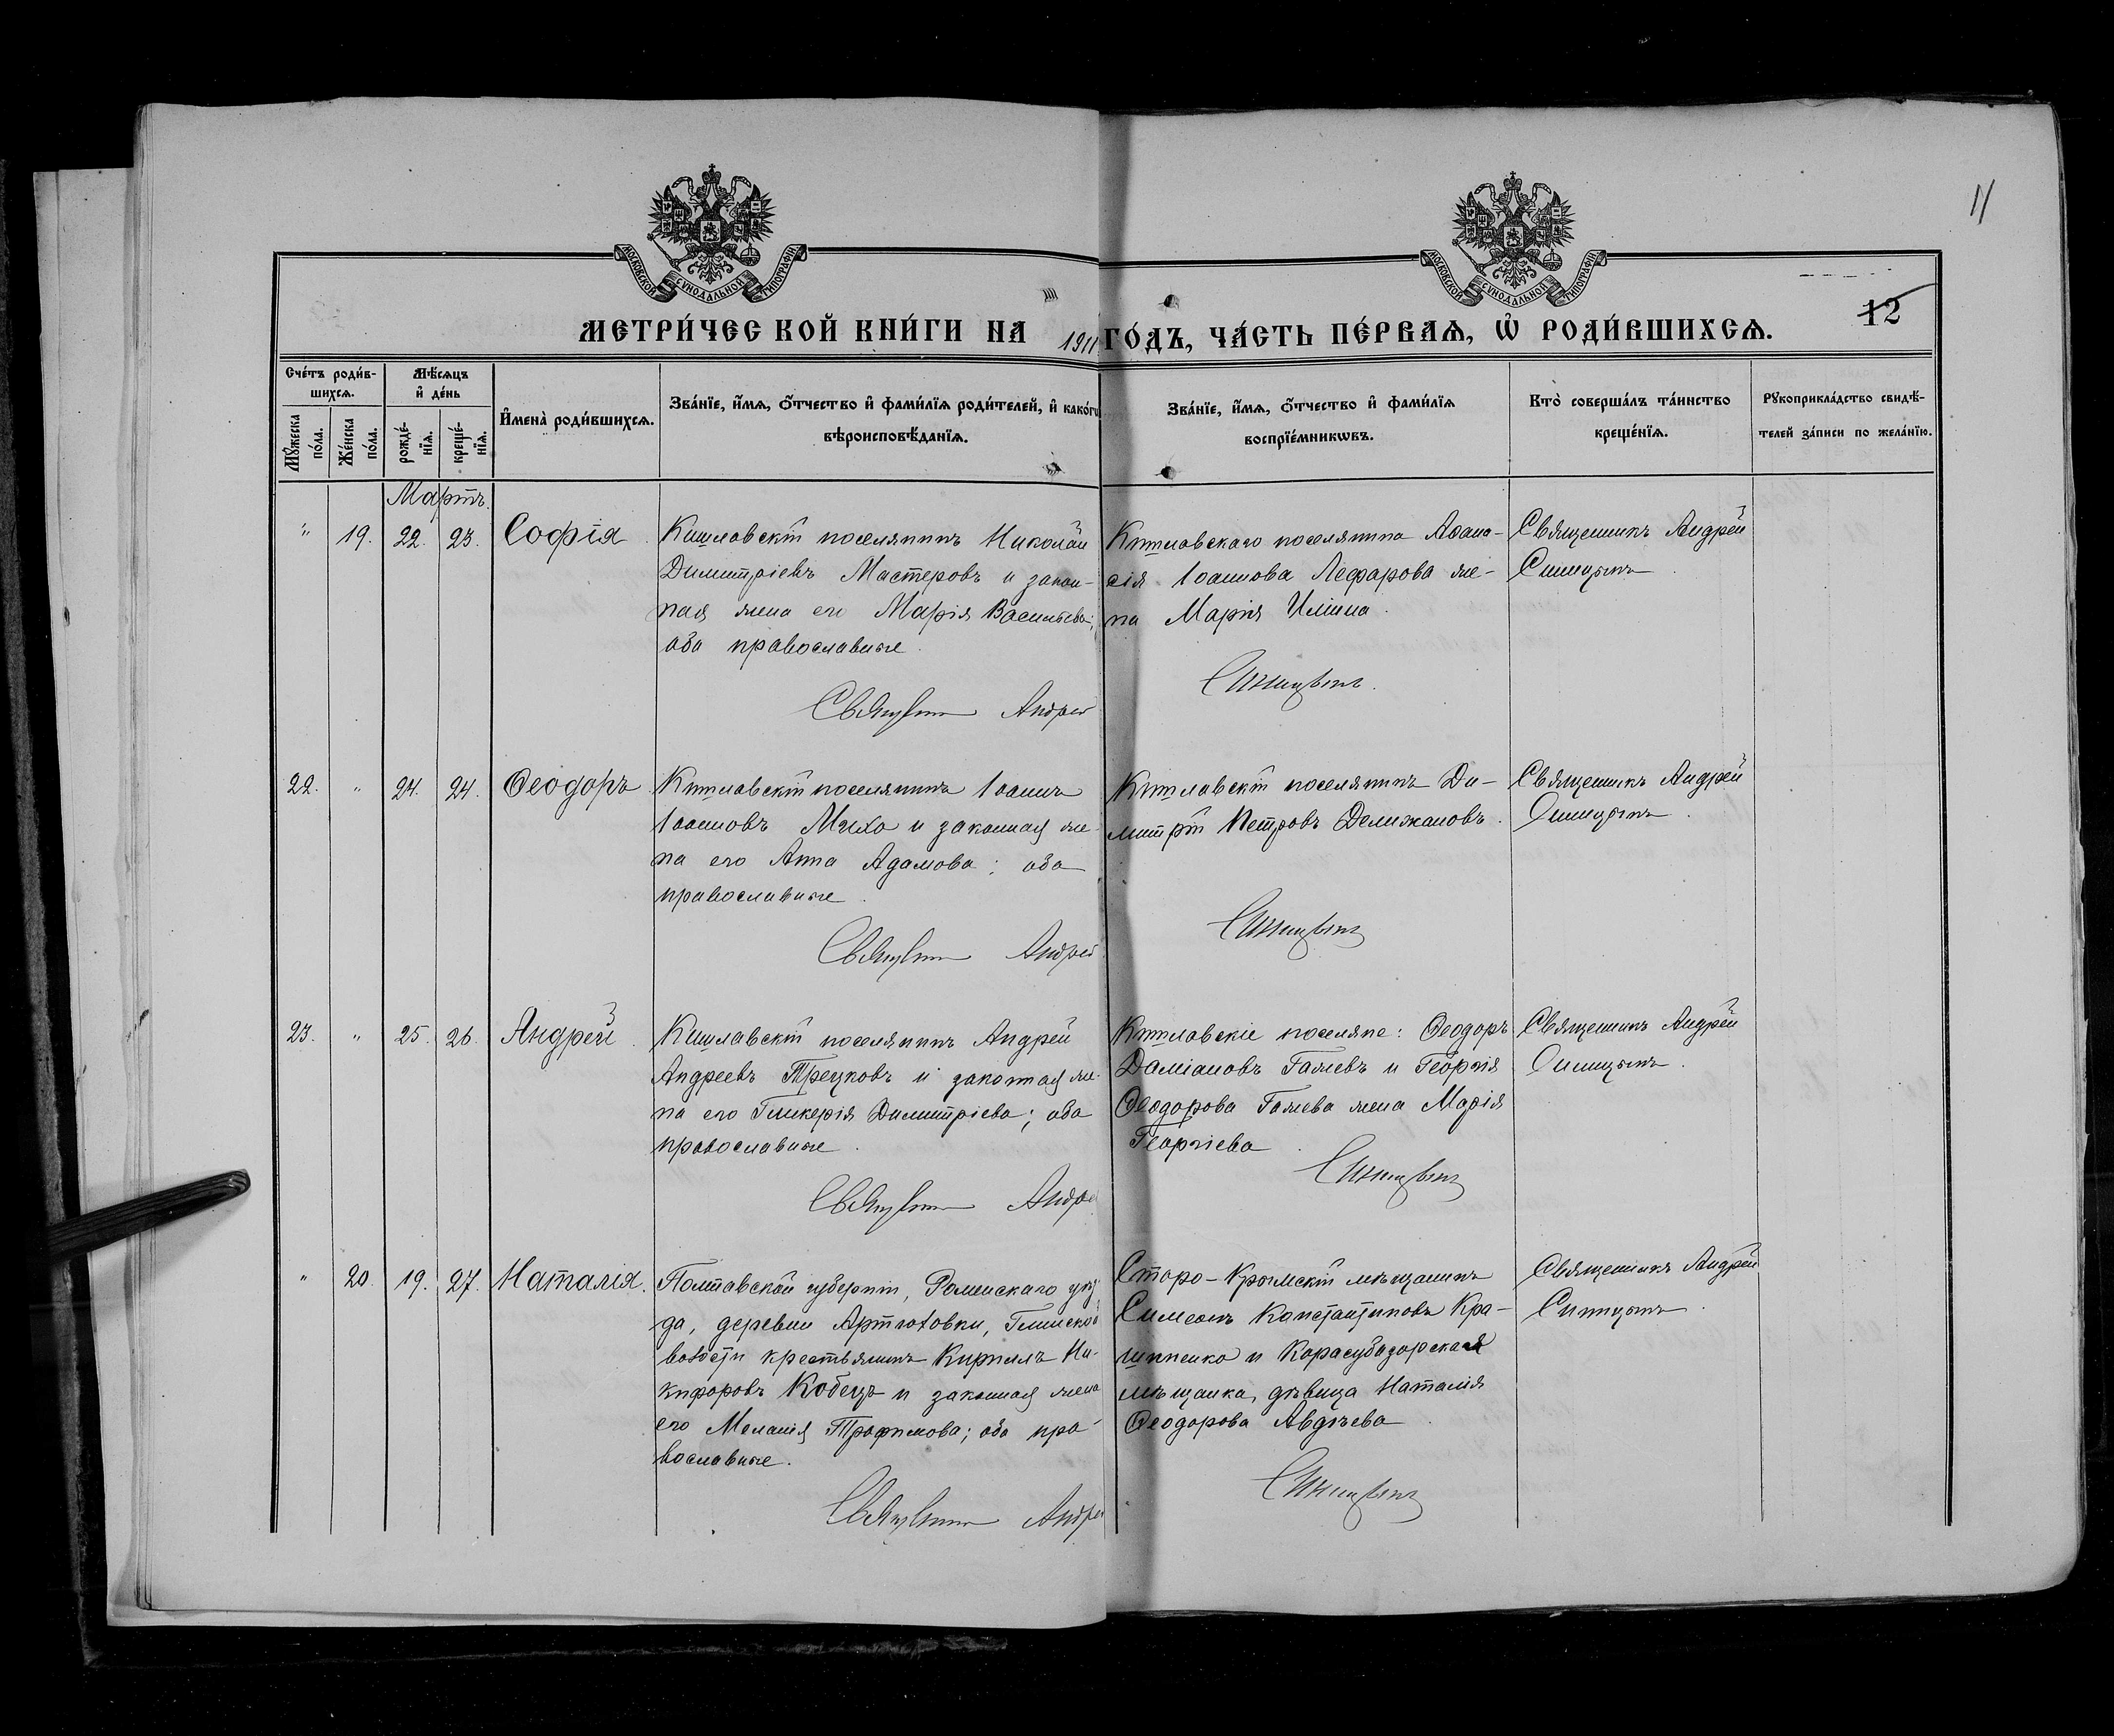 11
МОСКОВСКОЙ СѴНОДАЛЬНОЙ ТИПОГРАФІИ
МОСКОВСКОЙ СѴНОДАЛЬНОЙ ТИПОГРАФІИ
12
МЕТРИ́ЧЕСКОЙ КНИ́ГИ НА 1911 ГО́ДЪ, ЧА́СТЬ ПЕ́РВАѦ, Ѽ РОДИ́ВШИХСѦ.
Сче́тъ роди́в-
шихсѧ.
Мꙋ́жеска
по́ла.
Же́нска
по́ла.
Мѣ́сѧцъ
и҆ де́нь
рожде́-
нїѧ.
креще́-
нїѧ.
И҆мена̀ роди́вшихсѧ.
Зва́нїе, и҆́мѧ, ѻ҆́тчество и҆ фами́лїѧ роди́телей, и҆ како́гѡ
вѣроисповѣ́данїѧ.
Зва́нїе, и҆́мѧ, ѻ҆́тчество и҆ фами́лїѧ
воспрїе́мникѡвъ.
Кто̀ соверша́лъ та́инство
креще́нїѧ.
Рꙋкоприкла́дство свидѣ́-
телей за́писи по жела́нїю.
Мартъ.
" 19. 22. 23. Софія.
Кишлавскій поселянинъ Николай
Димитріевъ Мастеровъ и закон-
ная жена его Марія Васильева;
оба православные.
Кишлавскаго поселянина Аѳана-
сія Іоаннова Лефарова же-
на Марія Илiина.
Священникъ Андрей
Синицынъ.
Священникъ Андрей
Синицынъ.
22. " 24. 24. Ѳеодоръ
Кишлавскій поселянинъ Іоаннъ
Іоанновъ Михо и законная же-
на его Анна Адамова; оба
православные.
Кишлавскій поселянинъ Ди-
митрій Петровъ Делижановъ.
Священникъ Андрей
Синицынъ.
Священникъ Андрей
Синицынъ
23. " 25. 26. Андрей.
Кишлавскій поселянинъ Андрей
Андреевъ Трецковъ и законная же-
на его Гликерія Димитріева; оба
православные.
Кишлавскіе поселяне: Ѳеодоръ
Даміановъ Гачевъ и Георгія
Ѳеодорова Гачева жена Марія
Георгіева.
Священникъ Андрей
Синицынъ.
Священникъ Андрей
Синицынъ
" 20. 19. 27. Наталія.
Полтавской губерніи, Роменскаго уѣз-
да, деревни Артюховки, Глинской
волости крестьянинъ Кириллъ Ни-
кифоровъ Кобецъ и законная жена
его Меланія Трофимова; оба пра-
вославные.
Старо-Крымскій мѣщанинъ
Симеонъ Константиновъ Кра-
шненко и Карасубазарская
мѣщанка, дѣвица Наталія
Ѳеодорова Авдѣева.
Священникъ Андрей
Синицынъ.
Священникъ Андрей
Синицынъ